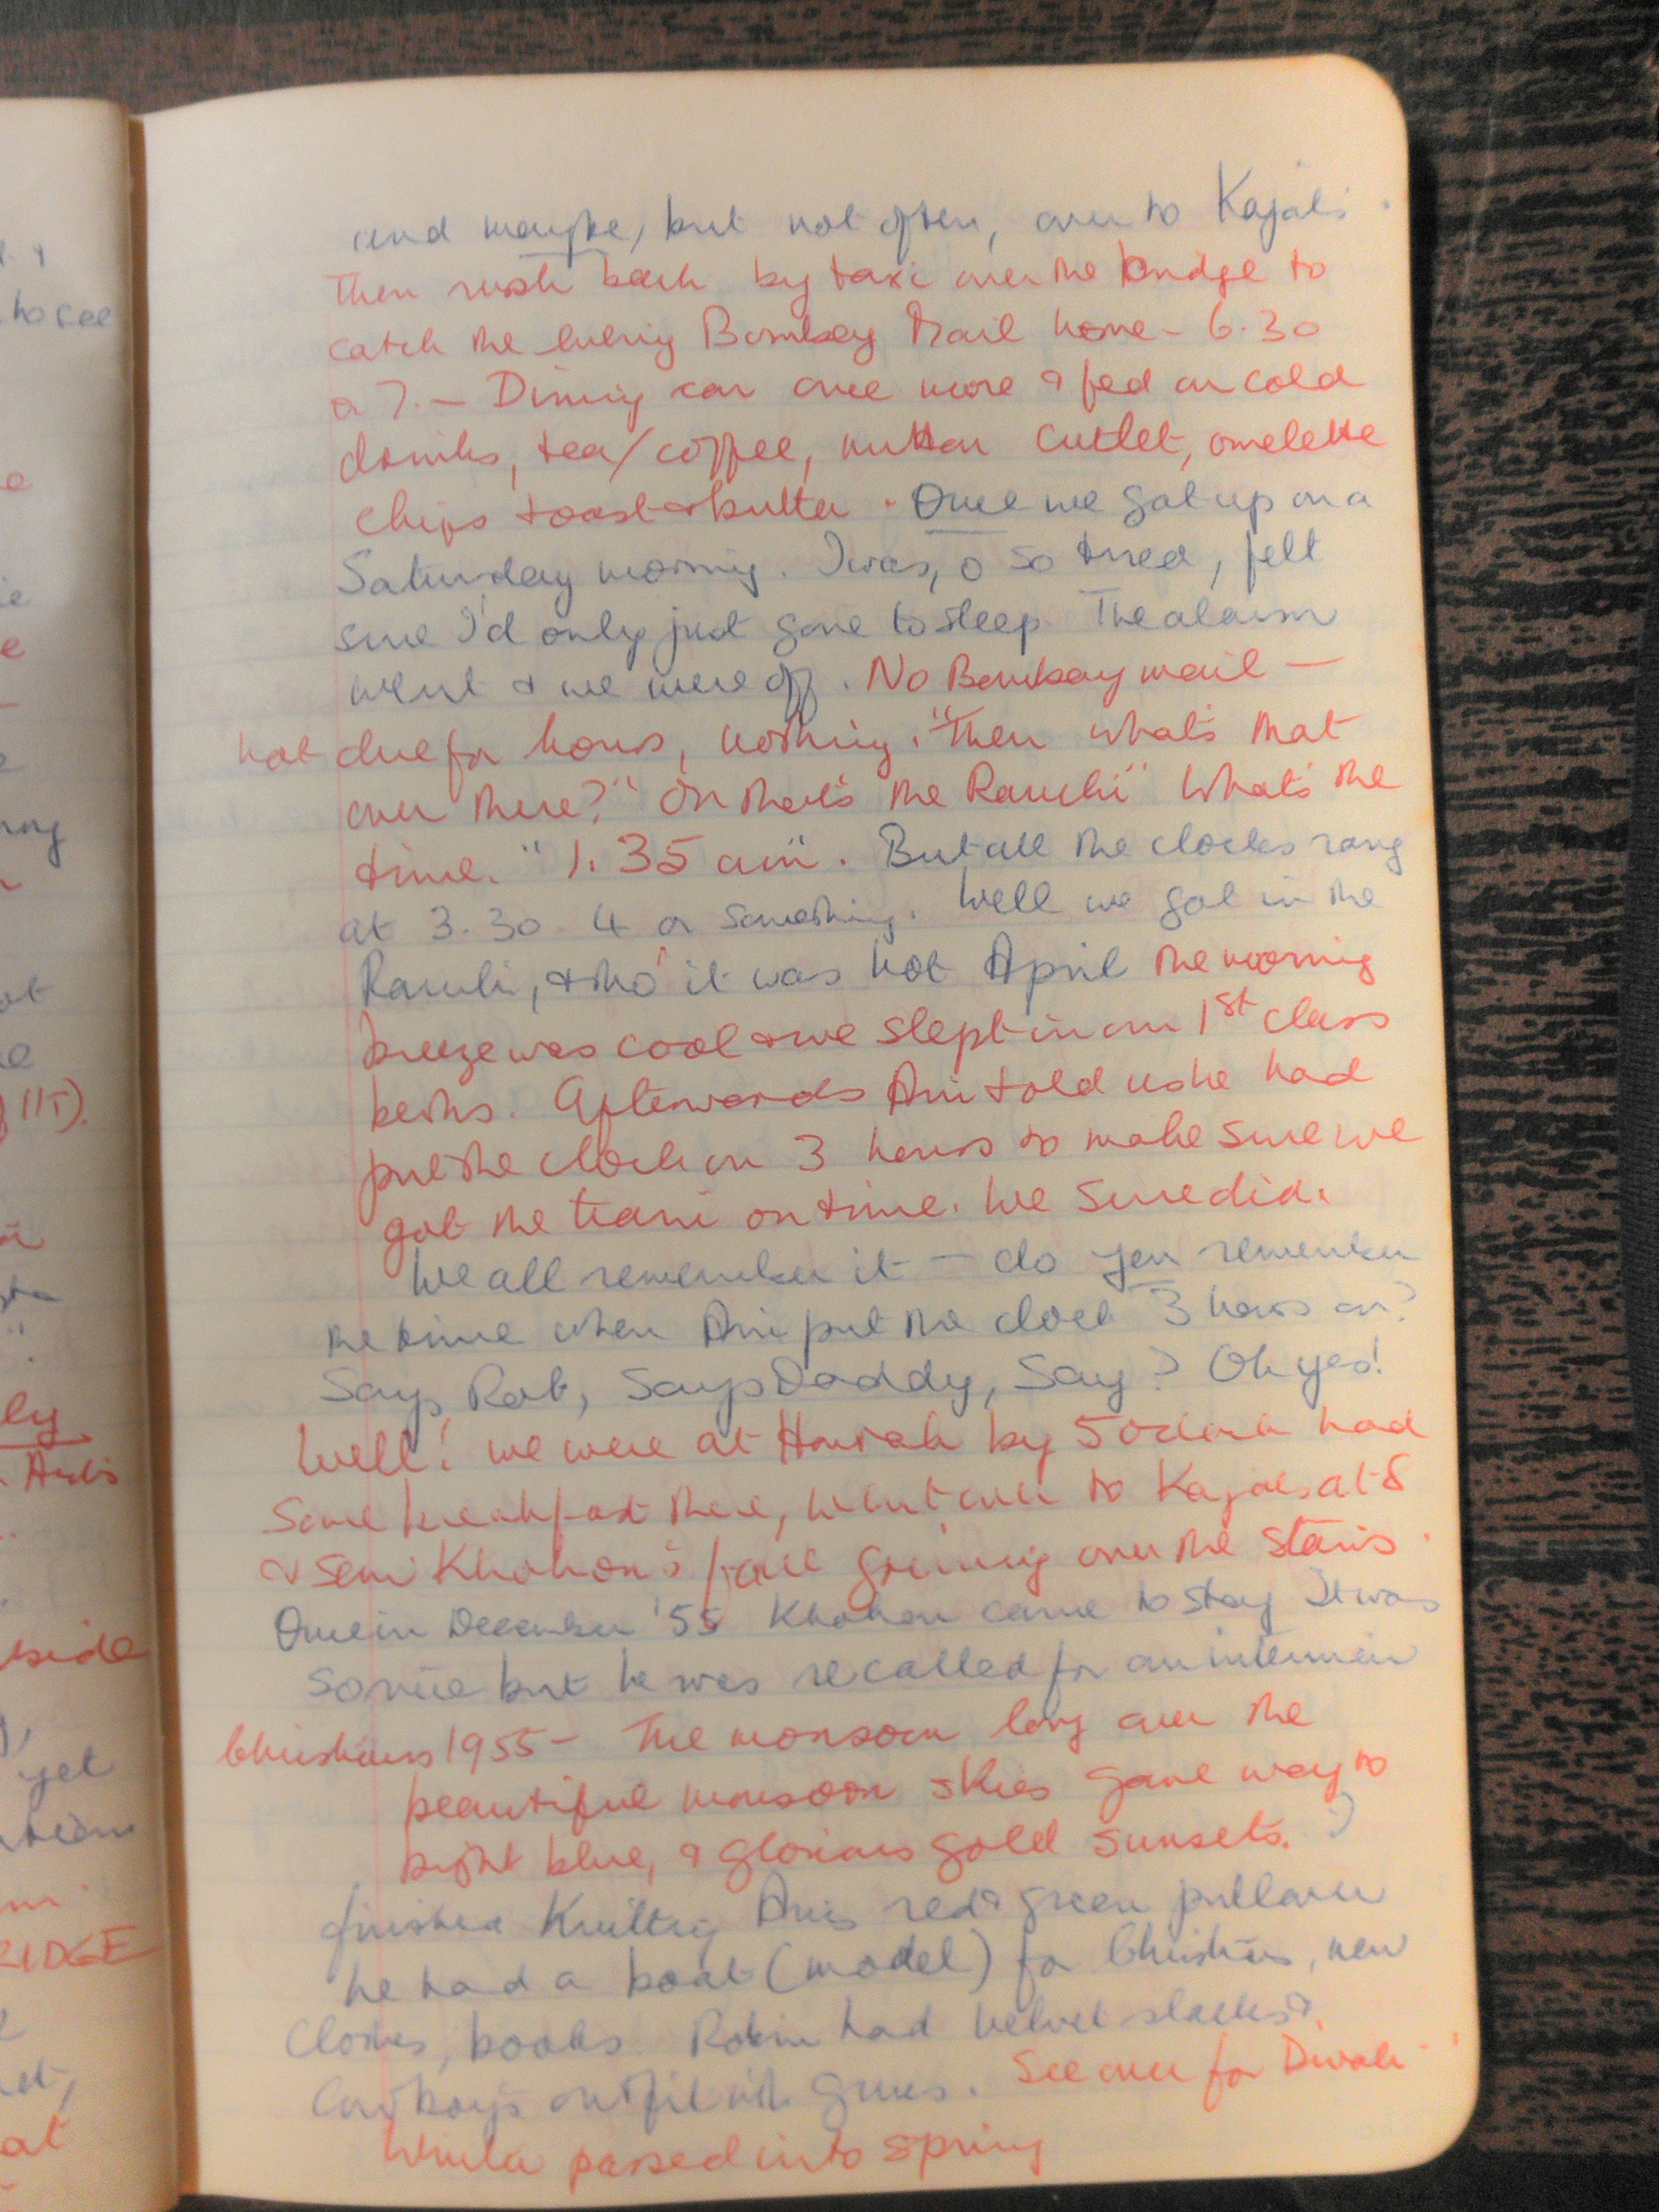 and maybe, but not often, over to Kajal's.
Then rush back by taxi over the bridge to
catch the Bombay Mail home - 6.30
or 7. - Dining car once more & fed on cold
drinks, tea/coffee, mutton cutlet, omelette
chips toast & butter. Once we got up on a
Saturday morning. I was, o so tired, felt
sure I'd only just gone to sleep. The alarm
went & we were off. No Bombay mail -
not due for hours, nothing. "Then what's that
over there?" "Oh that's the Ranchi" What's the
time. "1.35 am". But all the clocks rang
at 3.30. 4 or something. Well we got in the
Ranchi, & tho' it was hot April the morning
breeze was cool & we slept in our 1st class
berths. Afterwards Ani told us he had
put the clock on 3 hours to make sure we
got the train on time. We sure did.
We all remember it - do you remember
the time when Ani put the clock 3 hours on?
Says Rob, Says Daddy, Say? Oh yes!
Well! we were at Howrah by 5 oclock had
some breakfast there, went over to Kajal's at 8
& seen Khokon's face grinning over the stairs.
Once in December '55 Khokon came to stay It was
so nice but he was recalled for an interview
Christmas 1955 - The monsoon long over the
beautiful monsoon skies gave way to
bright blue, & glorious gold sunsets. I
finished knitting Ani's red & green pullover
he had a boat (model) for Christmas, new
clothes, books. Robin had velvet slacks &
Cowboy's outfit with guns. See over for Diwali
Winter passed into spring